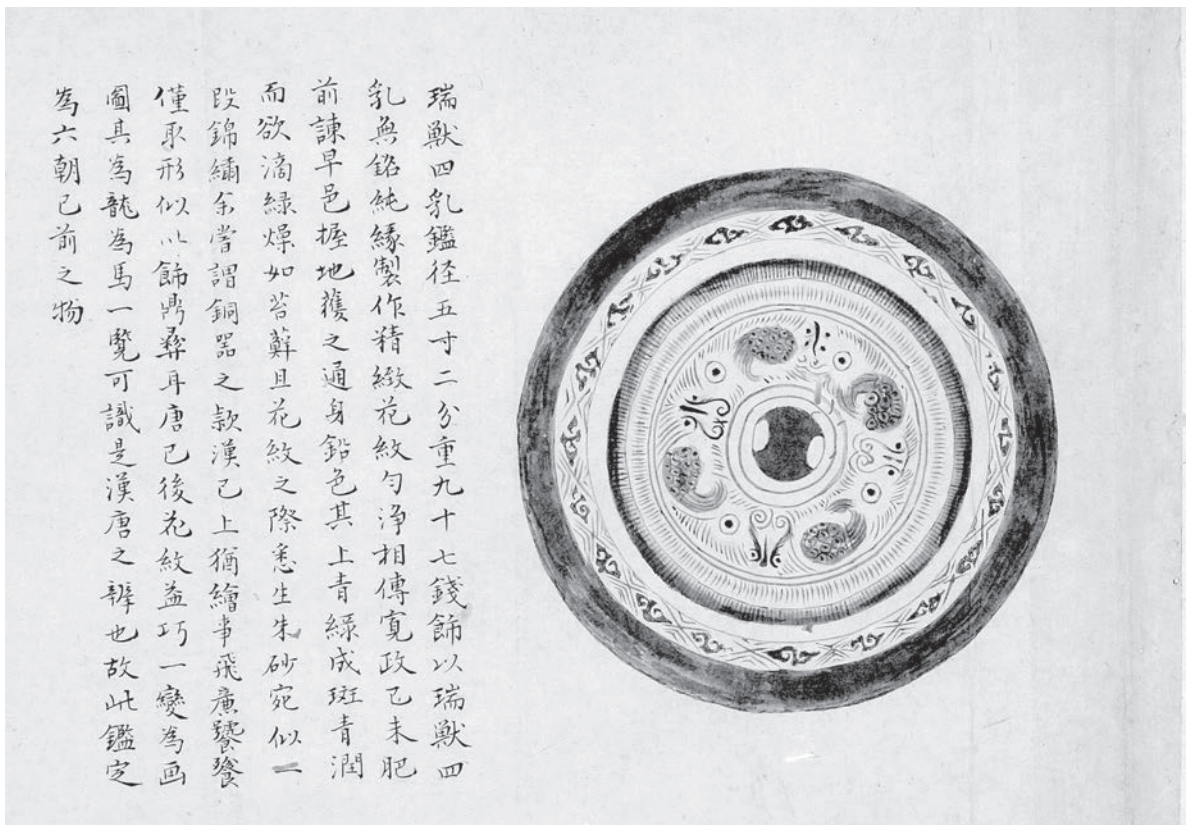 瑞獣四乳鑑径五寸二分重九十七錢飾以瑞獣四
乳無銘純緣製作精緻花紋勻浄相傳寛政己未肥
前諫早邑握地獲之通身鉛色其上青緑成斑青潤
而欲滴緑燥如苔蘚且花紋之際悉生朱砂宛似一
段錦繡余嘗謂銅器之款漢已上猶繪事飛廉饕餮
僅取形似以飾鼎彝耳唐已後花紋益巧一變為画
圖其為龍為馬一覧可識是漢唐之辨也故此鑑定
為六朝已前之物